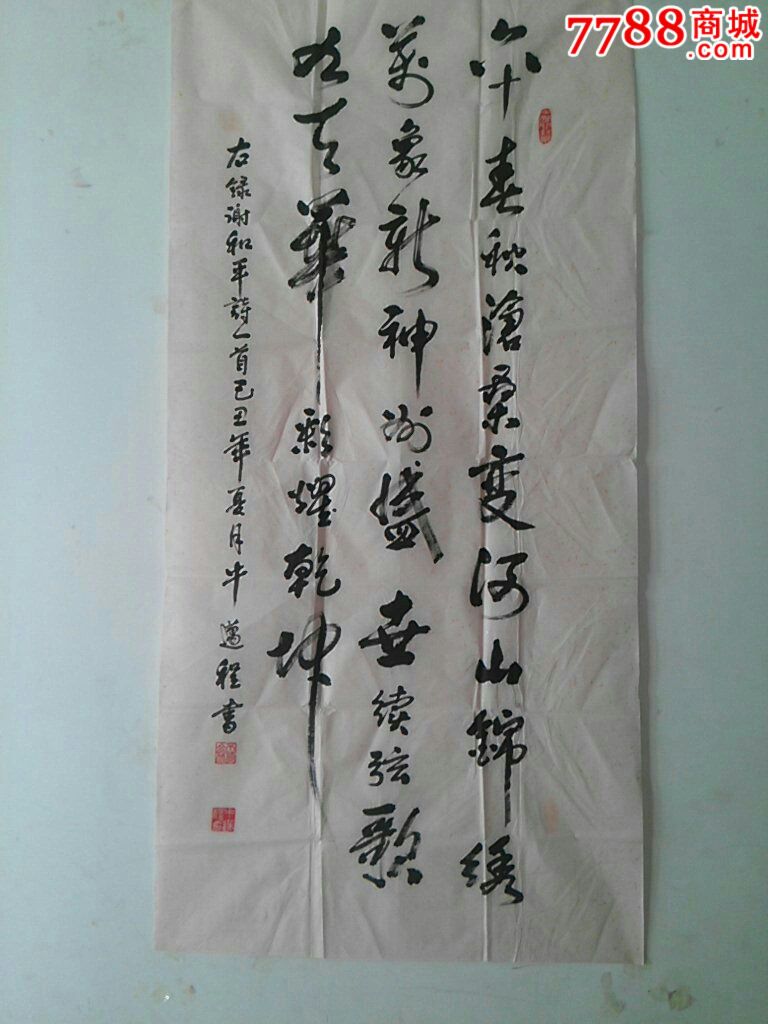 7788商城
.com
六十春秋滄桑變河山錦绣
萬象新神州盛世续弦歌
九天華彩耀乾坤
右録谢和平詩一首己丑年夏月牛邁程書